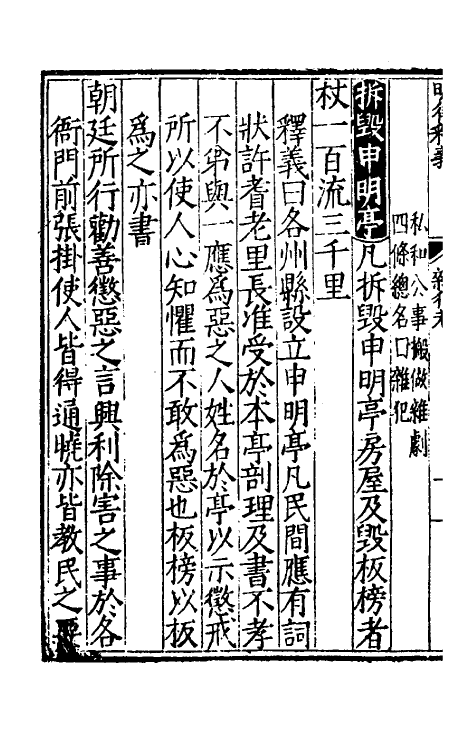 私和公事搬做雜劇
四條總名曰雜犯
拆毀申明亭凡拆毀申明亭房屋及毀板榜者
杖一百流三千里
釋義曰各州縣設立申明亭凡民間應有詞
狀許耆老里長准受於本亭剖理及書不孝
不弟與一應爲惡之人姓名於亭以示懲戒
所以使人心知懼而不敢爲惡也板榜以板
爲之亦書
朝廷所行勸善懲惡之言興利除害之事於各
衙門前張掛使人皆得通曉亦皆教民之